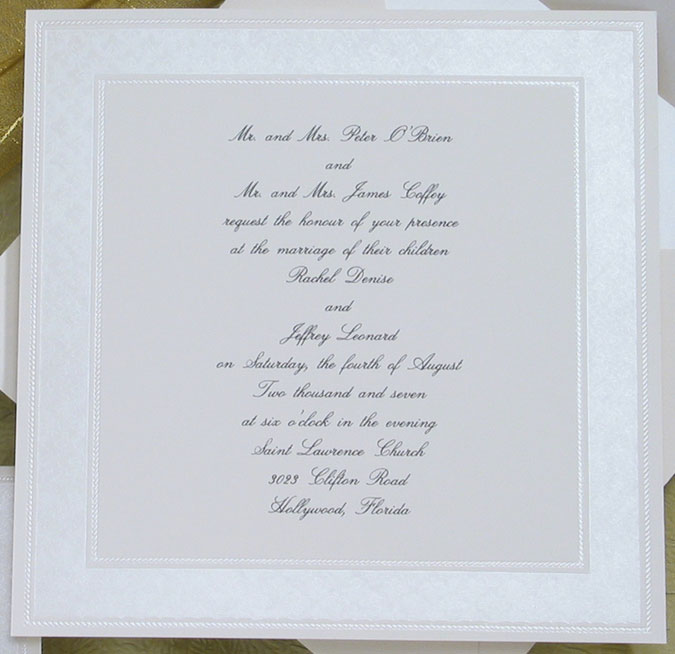 Mr. and Mrs. Peter O'Brien
and
Mr. and Mrs. James Coffey
request the honour of your presence
at the marriage of their children
Rachel Denise
and
Jeffrey Leonard
on Saturday, the fourth of August
Two thousand and seven
at six o'clock in the evening
Saint Lawrence Church
3023 Clifton Road
Hollywood, Florida